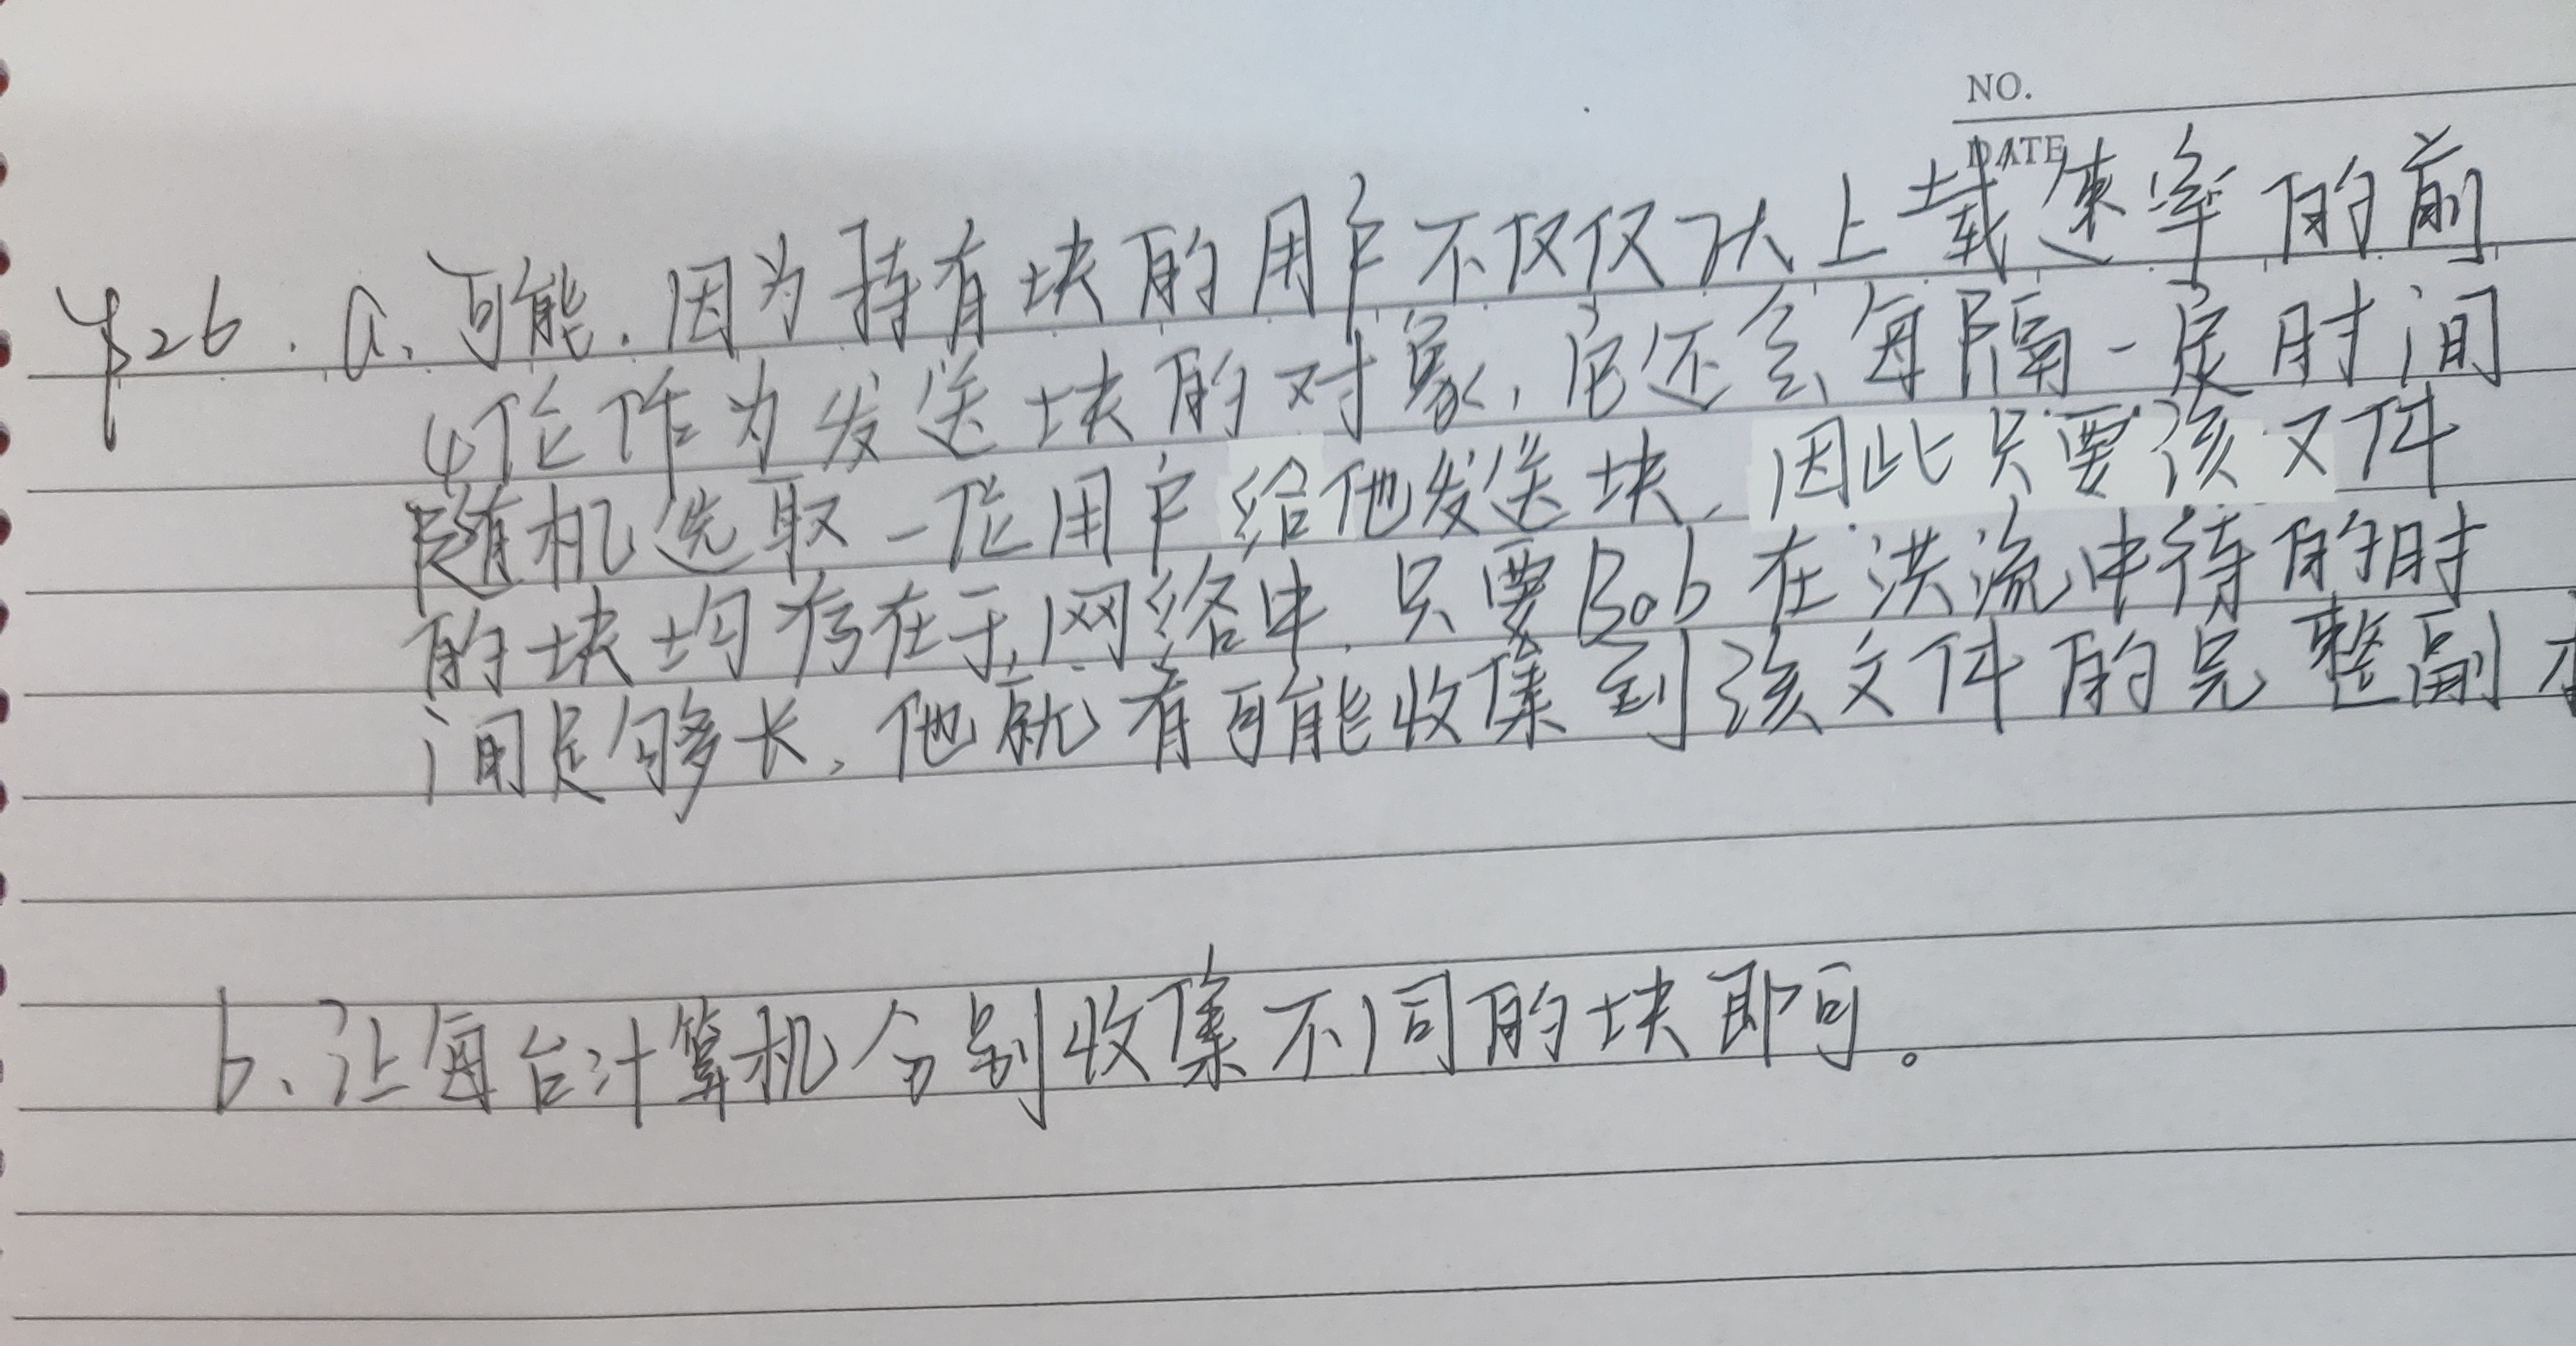 NO.
DATE
P26. a. 可能. 因为持有块的用户不仅仅从上载速率的前
4位作为发送块的对象, 它还会每隔一定时间
随机选取一位用户给他发送块, 因此只要该文件
的块均存在于网络中. 只要Bob在洪流中待的时
间足够长, 他就有可能收集到该文件的完整副本
b. 让每台计算机分别收集不同的块即可。